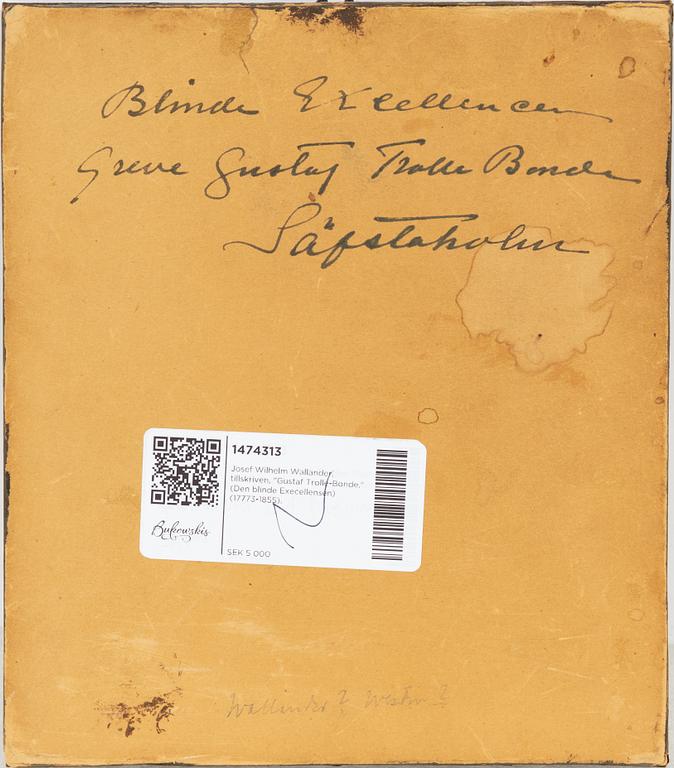 Blinde Excellencen
Greve Gustaf Trolle Bonde
Säfstaholm
1474313
Josef Wilhelm Wallander
tillskriven, "Gustaf Trolle-Bonde,"
(Den blinde Execellensen)
(17773-1855).
Bukowskis
SEK 5 000
Wallander? ?